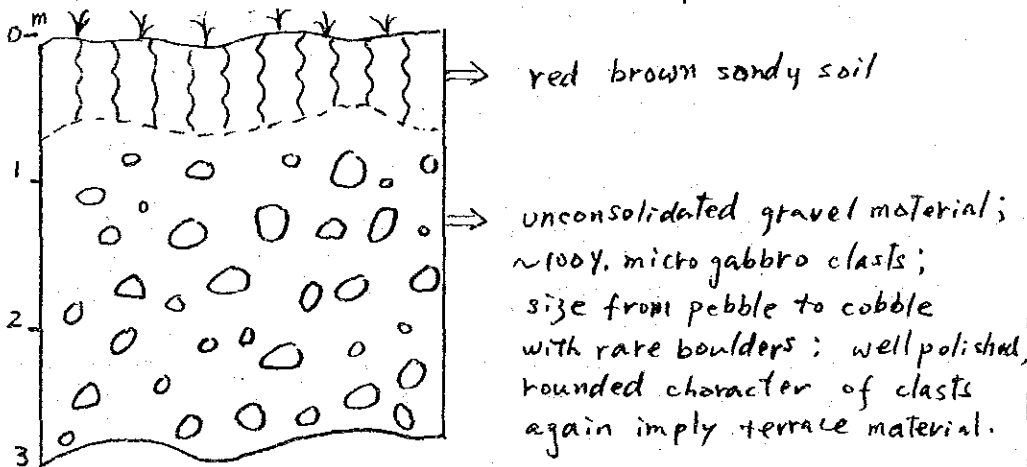 0 m
red brown sandy soil
1
unconsolidated gravel material;
~100%. micro gabbro clasts;
2
size from pebble to cobble
with rare boulders; well polished,
rounded character of clasts
again imply terrace material.
3